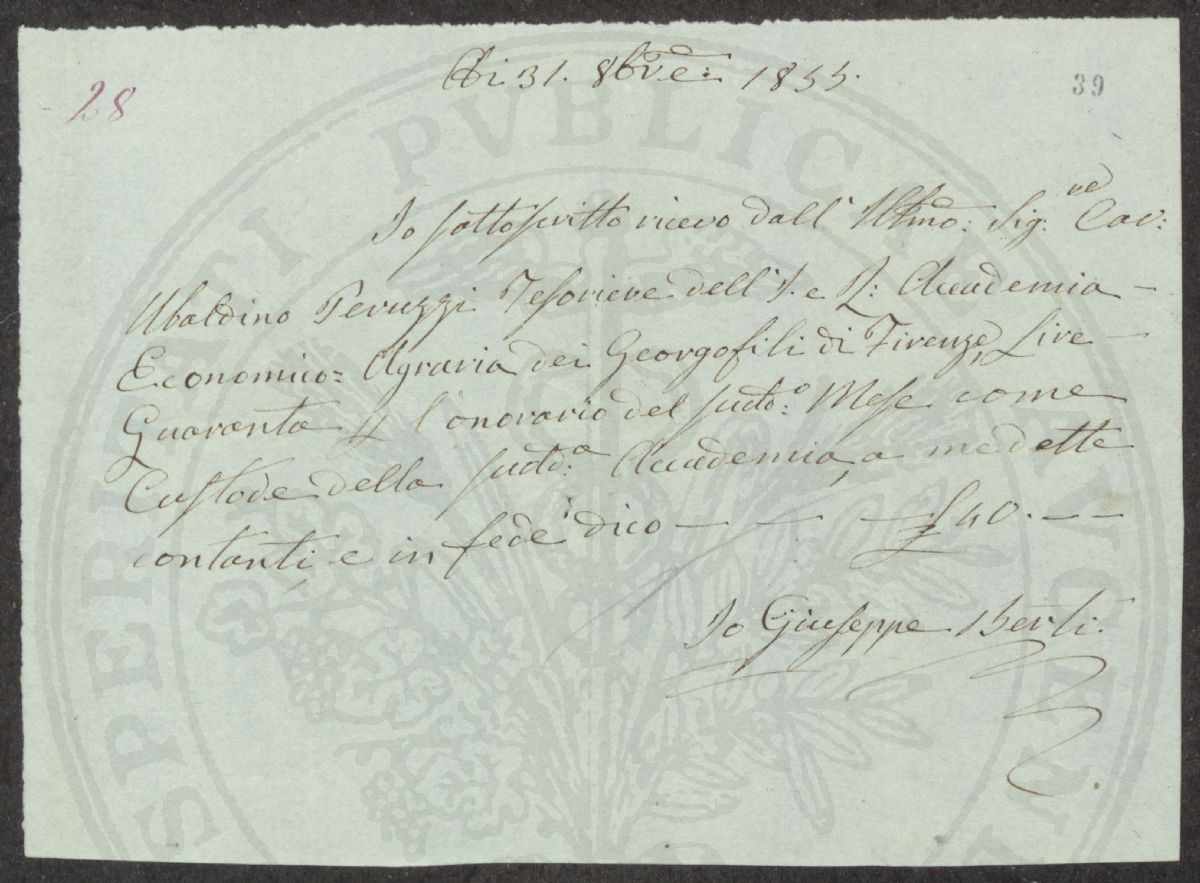 28
A dì 31. 8bre: 1855.
39
Io sottoscritto ricevo dall' Illmo: Sig.re Cav:
Ubaldino Peruzzi Tesoriere dell' I. e R: Accademia —
Economico= Agraria dei Georgofili di Firenze, Lire —
Quaranta p l'onorario del sudd:o Mese come
Custode della sudd:a Accademia, a me dette
contanti, e in fede dico — — — £ 40. — —
Io Giuseppe Berti.
PROSPERITATI PVBLICAE AVGENDAE